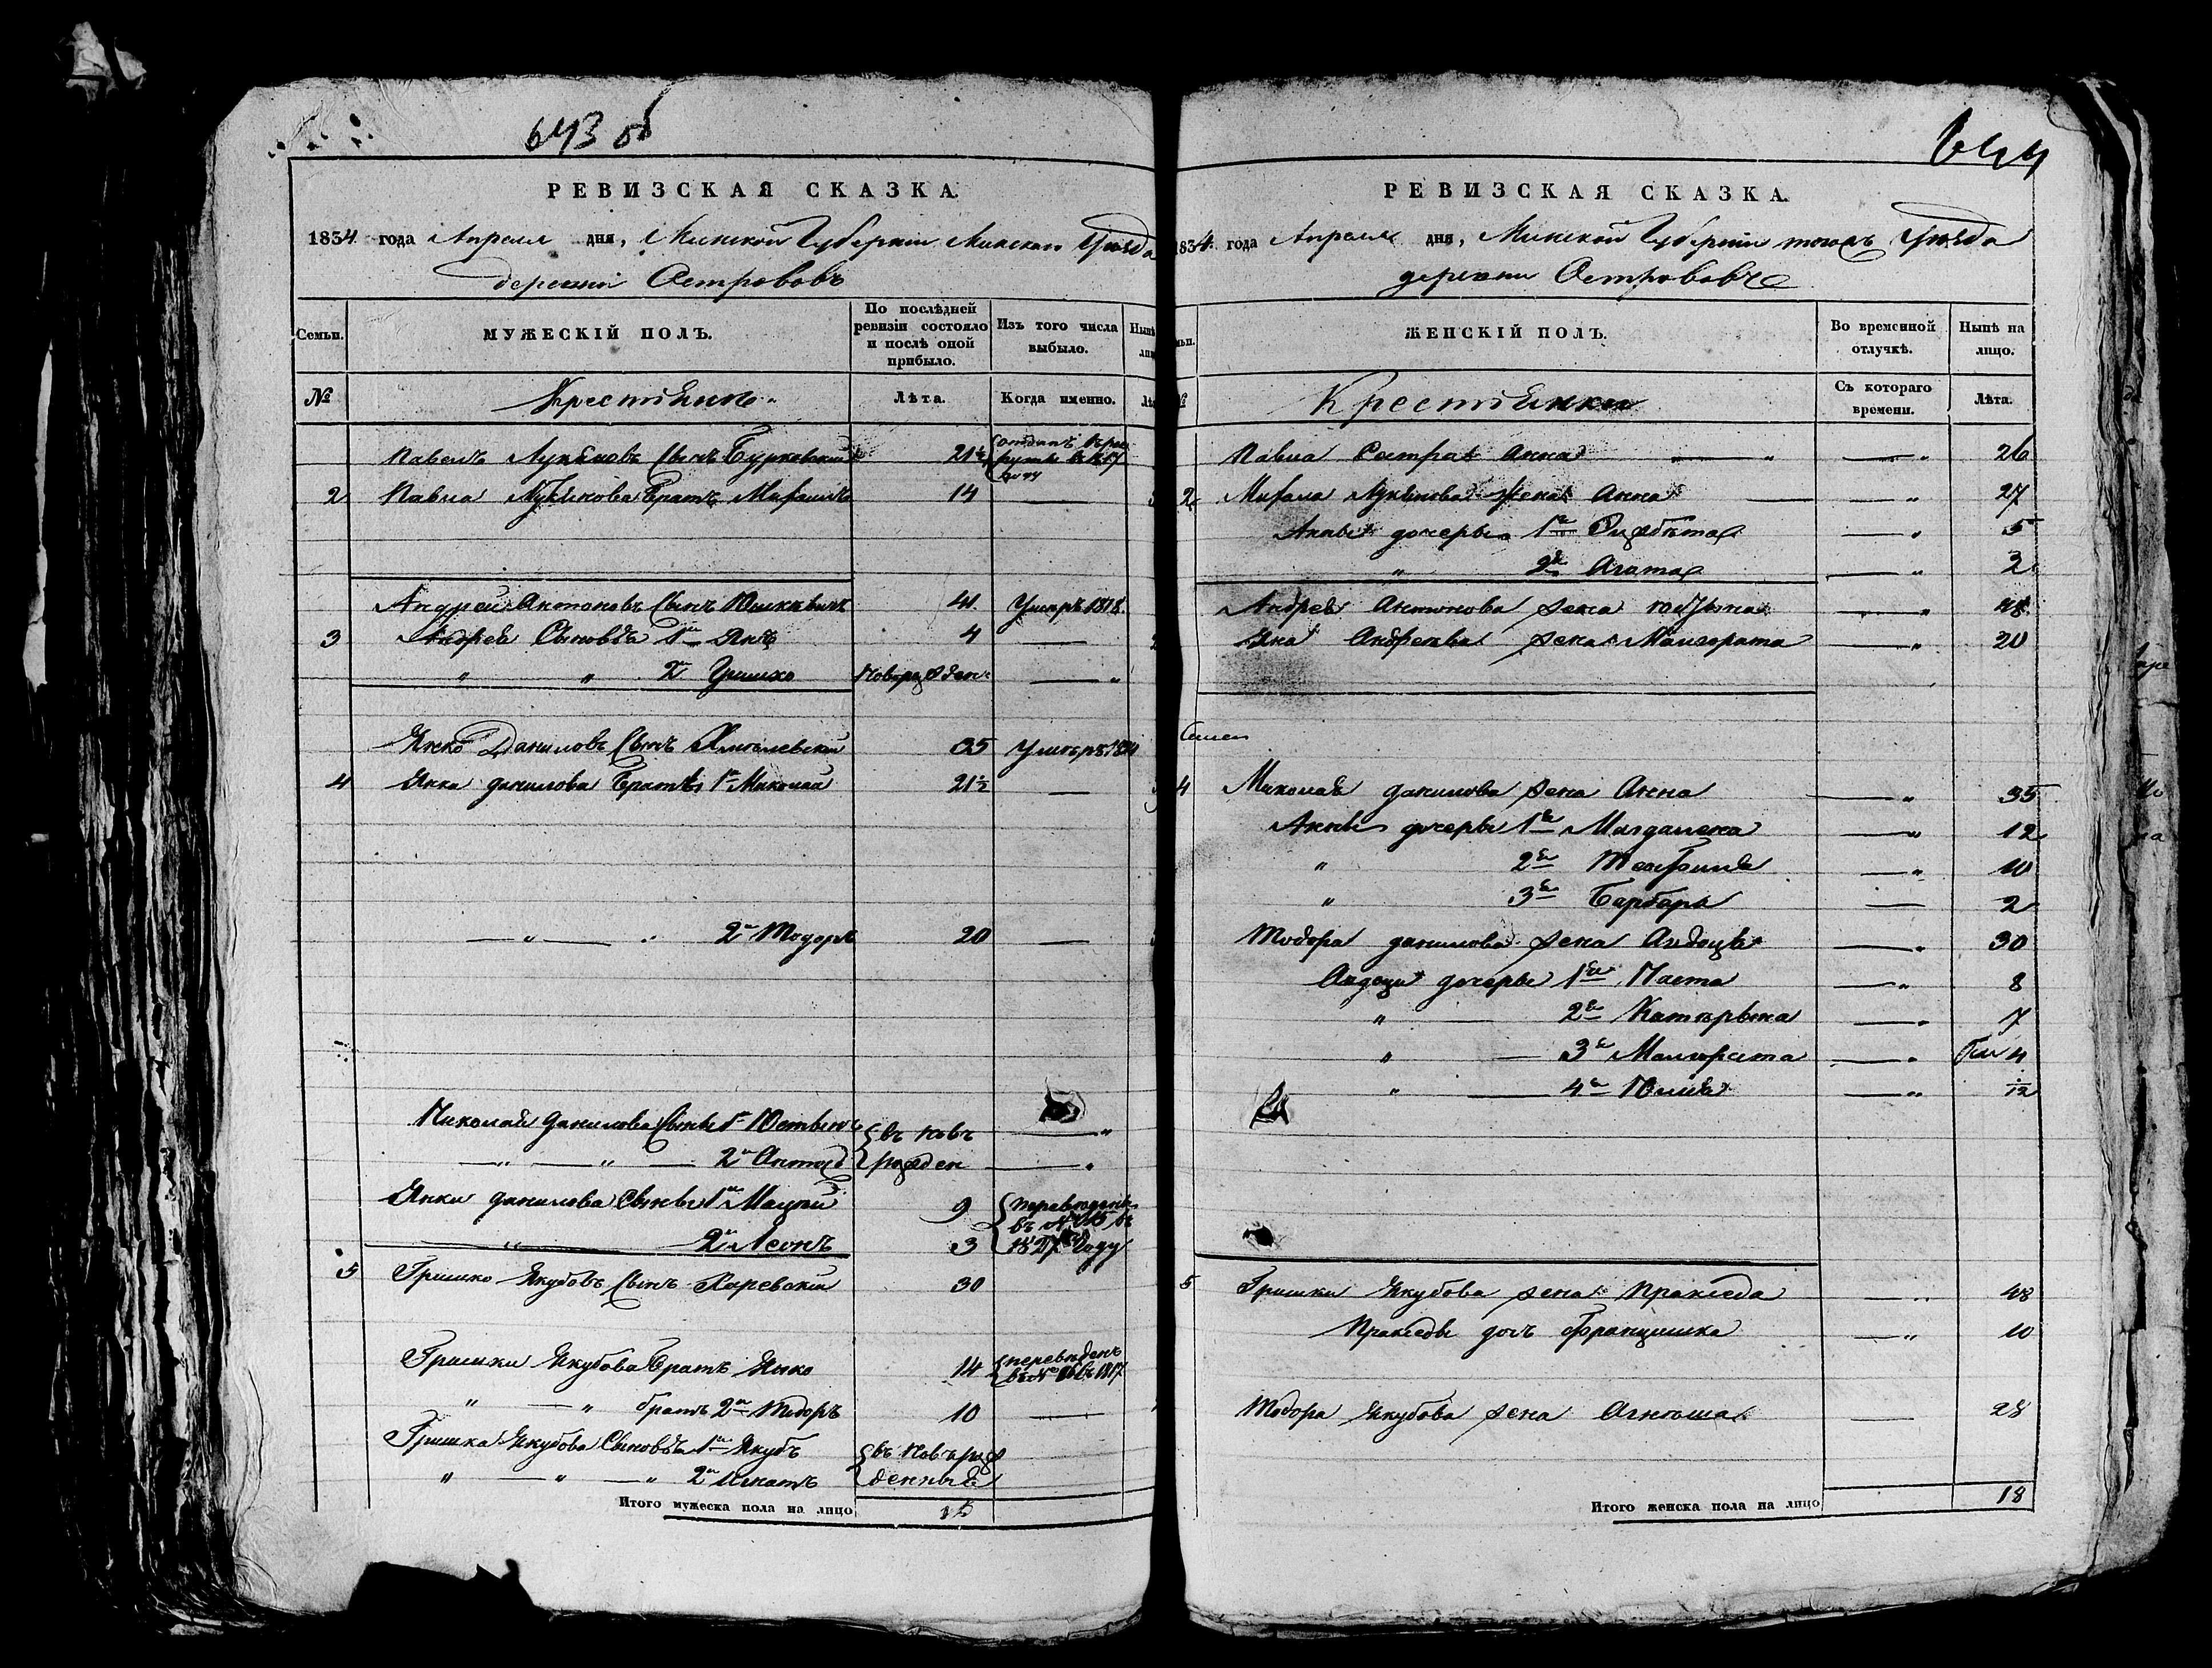 643 об
РЕВИЗСКАЯ СКАЗКА.
1834 года Апреля дня, Минской Губернии Минскаго Уѣзда
деревни Острововъ
Семьи. МУЖЕСКІЙ ПОЛЪ. По послѣдней ревизіи состояло и послѣ оной прибыло. Изъ того числа выбыло. Нынѣ
№ Крестьяне Лѣта. Когда именно.
Павелъ Лукьяновъ Сынъ Бурковский 21½ отданъ въ ре
круты в 1817
году
2 Павла Лукьянова Братъ Михаилъ 14 —
Андрей Антоновъ Сынъ Юшкевичъ 41. Умеръ 1818.
3 Андрея Сыновья 1й Янъ 4 —
" " 2й Гришко Новорожден: — "
Янко Даниловъ Сынъ Хмелевский 35 Умеръ
4 Янка данилова Братья 1й Миколай 21½ —
— " — " 2й Тодоръ 20 —
Миколая данилова Сыны 1й Юстынъ { въ новъ — "
— " — " — 2й Антон рожден — "
Янки данилова Сыны 1й Мацей 9 { переведены
въ № 15 въ
" 2й Леонъ 3 1827 Году
5 Гришко Якубовъ Сынъ Харевский 30
Гришки Якубова Братъ Янко 14 { переведенъ
въ № 16 въ 1817
" — " братъ 2й Тодоръ 10 —
Гришка Якубова Сыновья 1й Якубъ { въ Новорож
" — " — " 2й Игнатъ денныя
Итого мужеска пола на лицо 15
644
РЕВИЗСКАЯ СКАЗКА.
1834. года Апреля дня, Минской Губернии тогожъ Уѣзда
деревни Острововъ
ЖЕНСКІЙ ПОЛЪ. Во временной отлучкѣ. Нынѣ на лицо.
№ Крестьянки Съ котораго времени. Лѣта.
Павла Сестра Анна — " — " 26
2 Михала Лукьянова Жена Анна — — " 27
Анны дочеры 1я Ельжбѣта — " 5
" 2я Агата — " 2
Андрея Антонова жена Юстына — " 48
Яна Андреева жена Малгората — " 20
4 Миколая данилова жена Анна — " 35
Анны дочеры 1я Магдалена — " 12
" 2я Теофиля — " 10
" 3я Барбара — 2
Тодора данилова жена Авдоця — " 30
Авдоци дочеры 1я Наста — " 8
" — 2я Катерына — " 7
" — 3я Малгората — " 4
" — 4я Юлія — "
5 Гришки Якубова жена Пракседа — " 48
Пракседы дочъ Францишка — " 10
Тодора Якубова жена Агнеша — 28
Итого женска пола на лицо 18